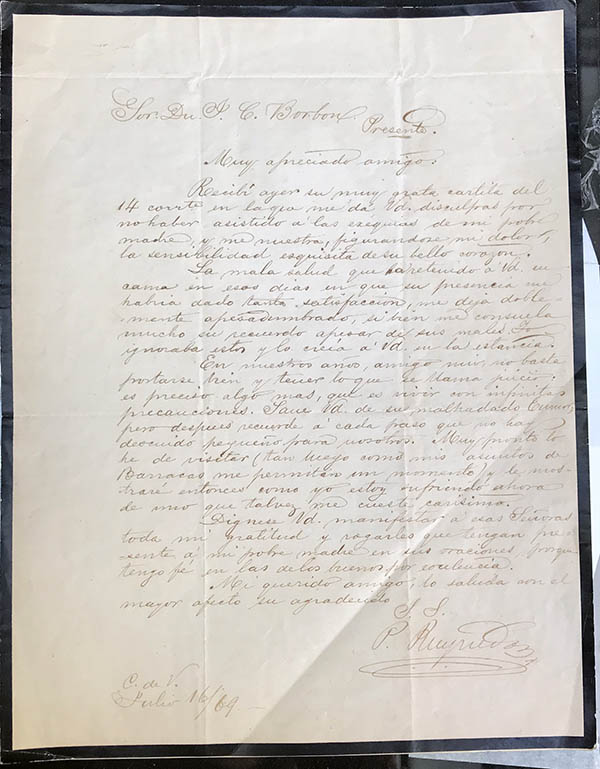 Sor. Dn J. C. Borbon
Presente.
Muy apreciado amigo:
Recibí ayer su muy grata cartita del
14 corrte en la que me da Vd. disculpas por
no haber asistido á las exéquias de mi pobre
madre, y me muestra, figurandose mi dolor,
la sensibilidad esquisita de su bello corazon.
La mala salud que ha retenido á Vd. en
cama en esos dias en que su presencia me
habria dado tanta satisfaccion, me deja doble-
mente apesadumbrado, si bien me consuela
mucho su recuerdo apesar de sus males. Yo
ignoraba estos y lo creía á Vd. en la estancia.
En nuestros años, amigo mio, no basta
portarse bien y tener lo que se llama juicio:
es preciso algo mas, que es vivir con infinitas
precauciones. Sane Vd. de su malhadado
pero despues recuerde á cada paso que no hay
descuido pequeño para nosotros. Muy pronto lo
he de visitar (tan luego como mis asuntos de
Barracas me permitan un momento) y le mos-
trare entonces como yo estoy sufriendo ahora
de uno que talvez me cueste carísimo.
Dignese Vd. manifestar á esas Señoras
toda mi gratitud y rogarles que tengan pre-
sente á mi pobre madre en sus oraciones, porque
tengo fé en las de los buenos por
Mi querido amigo, lo saluda con el
mayor afecto su agradecido
S. S.
P.
C. de V.
Julio 16/69.